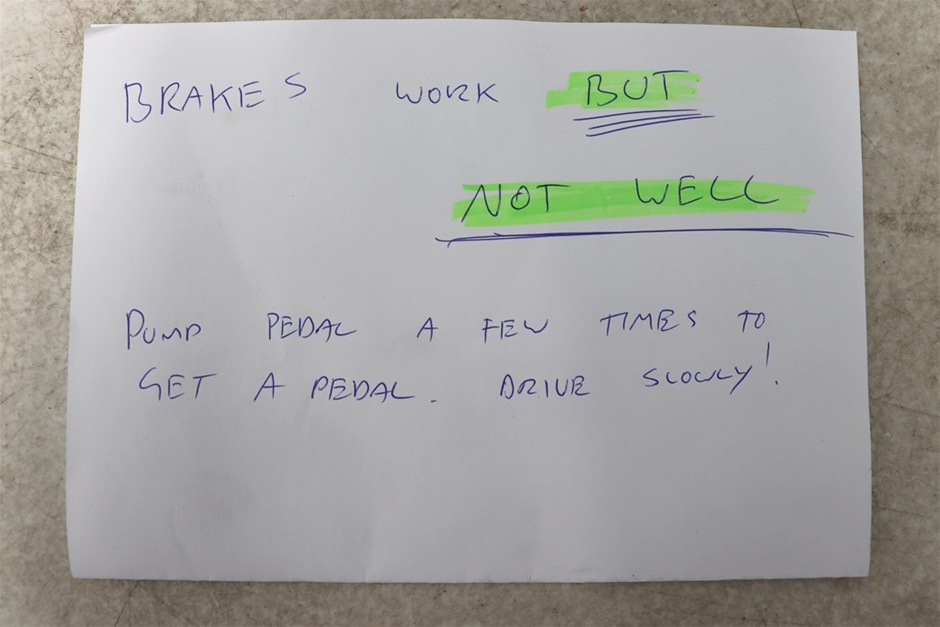 BRAKES WORK BUT
NOT WELL
PUMP PEDAL A FEW TIMES TO
GET A PEDAL. DRIVE SLOWLY!